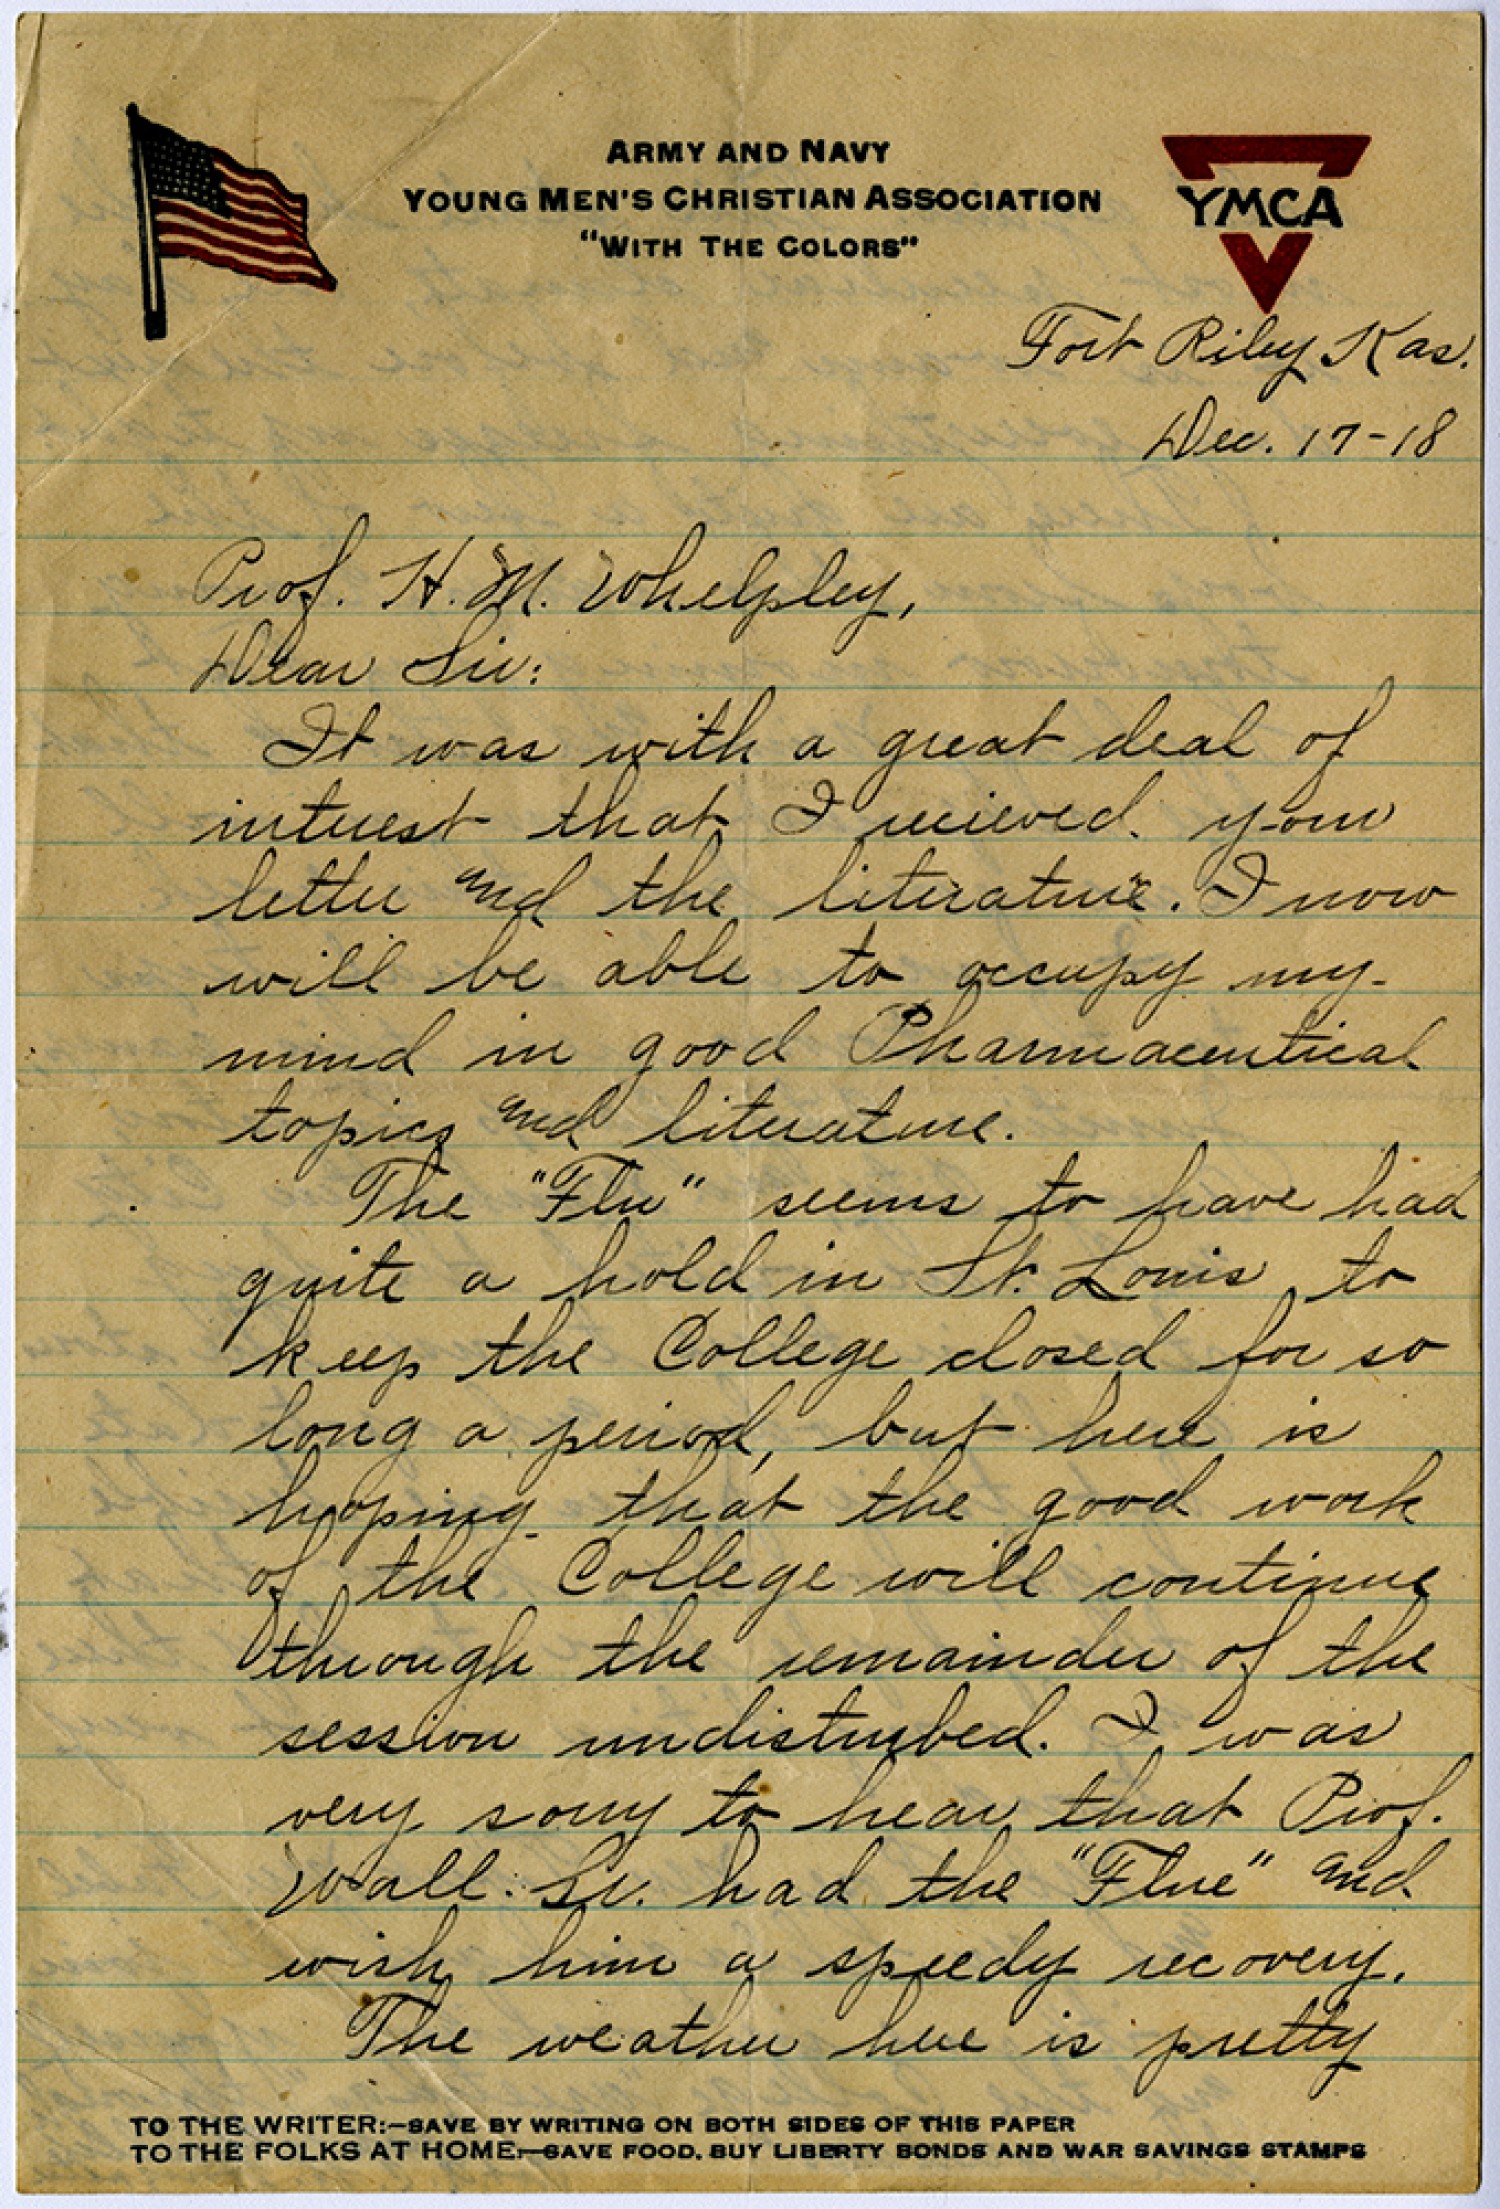 ARMY AND NAVY
YOUNG MEN'S CHRISTIAN ASSOCIATION
"WITH THE COLORS"
YMCA
Fort Riley Kas.
Dec. 17-18
Prof. H. M. Whelpley,
Dear Sir:
It was with a great deal of
interest that I recieved your
letter and the literature. I now
will be able to occupy my
mind in good Pharmaceutical
topics and literature.
The "Flu" seems to have had
quite a hold in St. Louis to
keep the College closed for so
long a period, but here is
hoping that the good work
of the College will continue
through the remainder of the
session undisturbed. I was
very sorry to hear that Prof.
Wall. Sr. had the "Flue" and
wish him a speedy recovery.
The weather here is pretty
TO THE WRITER:-SAVE BY WRITING ON BOTH SIDES OF THIS PAPER
TO THE FOLKS AT HOME:-SAVE FOOD, BUY LIBERTY BONDS AND WAR SAVINGS STAMPS